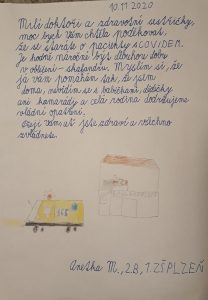 10.11 2020
Milí doktoři a zdravotní sestřičky,
moc bych Vám chtěla poděkovat,
že se staráte o pacienty s COVIDEM.
Je hodně náročné být dlouhou dobu
v oblečení - skafandru. Myslím si, že
já vám pomáhám tak, že jsem
doma, nevidím se s babičkami, dědečky
ani kamarády a celá rodina dodržujeme
vládní opatření.
ať jste zdraví a všechno
zvládnete.
Anežka M., 2.B, 1. ZŠ PLZEŇ